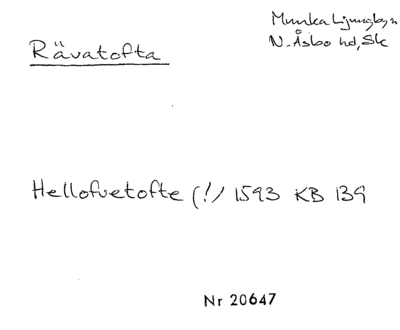 Munka Ljungby n
N. Åsbo hd, Sk
Rävatofta
Hellofvetofte (!) 1593 KB 139
Nr 20647